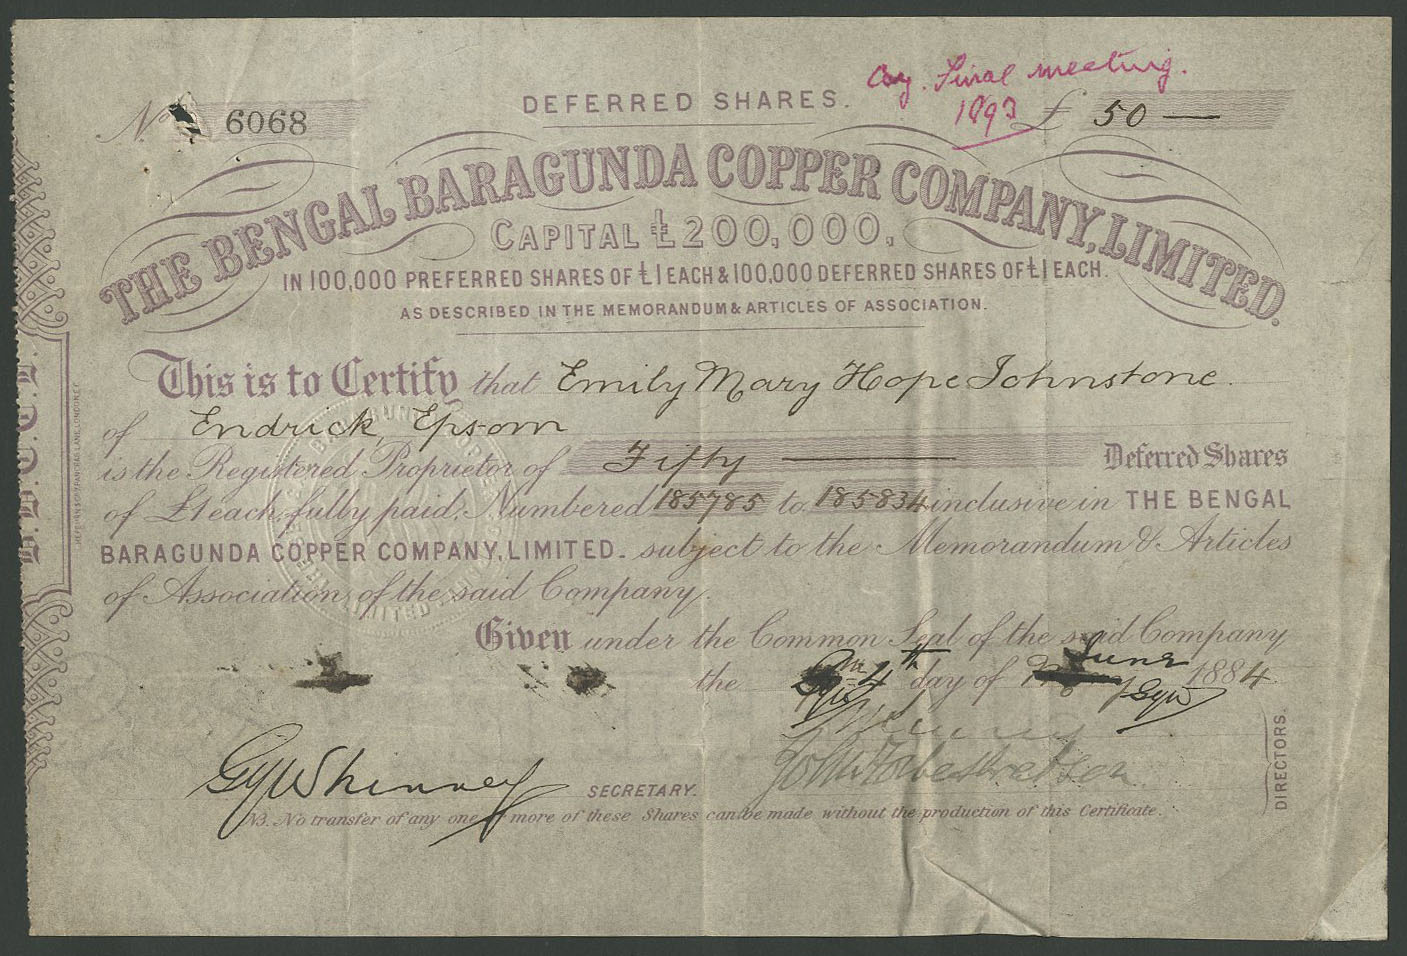 DEFERRED SHARES.
Final meeting.
1893
No 6068
£ 50 —
THE BENGAL BARAGUNDA COPPER COMPANY, LIMITED.
CAPITAL £200,000,
IN 100,000 PREFERRED SHARES OF £1 EACH & 100,000 DEFERRED SHARES OF £1 EACH.
AS DESCRIBED IN THE MEMORANDUM & ARTICLES OF ASSOCIATION.
This is to Certify that Emily Mary Hope Johnstone
of Endrick, Epsom
is the Registered Proprietor of Fifty Deferred Shares
of £1 each, fully paid, Numbered 185785 to 185834 inclusive in THE BENGAL
BARAGUNDA COPPER COMPANY, LIMITED. subject to the Memorandum & Articles
of Association of the said Company.
Given under the Common Seal of the said Company
the 4th day of June 1884
SECRETARY.
DIRECTORS.
NB. No transfer of any one or more of these Shares can be made without the production of this Certificate.
B.B.C.C.L.